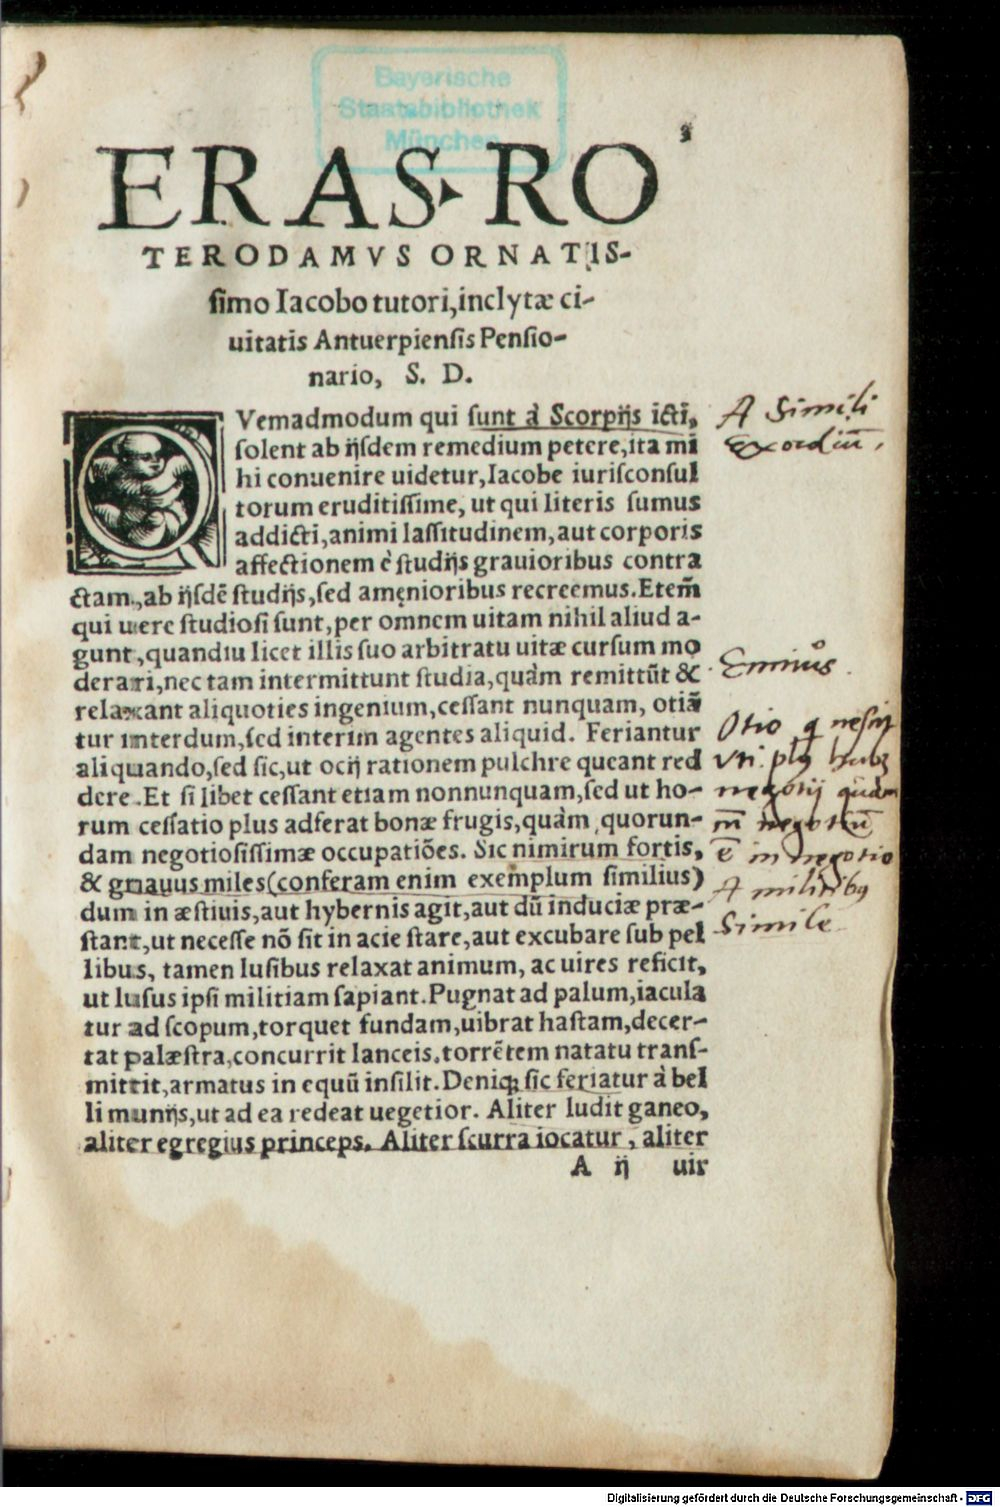 Bayerische
Staatsbibliothek
München
ERAS. RO
TERODAMVS ORNATIS-
ſimo Iacobo tutori, inclytæ ci-
uitatis Antuerpienſis Penſio-
nario, S. D.
QVemadmodum qui ſunt à Scorpijs icti,
ſolent ab ijſdem remedium petere, ita mi
hi conuenire uidetur, Iacobe iuriſconſul
torum eruditiſſime, ut qui literis ſumus
addicti, animi laſſitudinem, aut corporis
affectionem è ſtudijs grauioribus contra
ctam, ab ijſdē ſtudijs, ſed amęnioribus recreemus. Etem̄
qui uere ſtudioſi ſunt, per omnem uitam nihil aliud a-
gunt, quandiu licet illis ſuo arbitratu uitæ curſum mo
derari, nec tam intermittunt ſtudia, quàm remittūt &
relaxant aliquoties ingenium, ceſſant nunquam, otiā
tur interdum, ſed interim agentes aliquid. Feriantur
aliquando, ſed ſic, ut ocij rationem pulchre queant red
dere. Et ſi libet ceſſant etiam nonnunquam, ſed ut ho-
rum ceſſatio plus adferat bonæ frugis, quàm quorun-
dam negotioſiſſimæ occupatiões. Sic nimirum fortis,
& gnauus miles (conferam enim exemplum ſimilius)
dum in æſtiuis, aut hybernis agit, aut dū induciæ præ-
ſtant, ut neceſſe nō ſit in acie ſtare, aut excubare ſub pel
libus, tamen luſibus relaxat animum, ac uires reficit,
ut luſus ipſi militiam ſapiant. Pugnat ad palum, iacula
tur ad ſcopum, torquet fundam, uibrat haſtam, decer-
tat palæſtra, concurrit lanceis, torrētem natatu tranſ-
mittit, armatus in equū inſilit. Deniq; ſic feriatur à bel
li munijs, ut ad ea redeat uegetior. Aliter ludit ganeo,
aliter egregius princeps. Aliter ſcurra iocatur, aliter
A ij uir
A Simili
Exordiū,
Otio q nescit
vti. plus habz
negotij quàm
negotiū
ē in negotio
A militibus
Simile
Digitalisierung gefördert durch die Deutsche Forschungsgemeinschaft - DFG